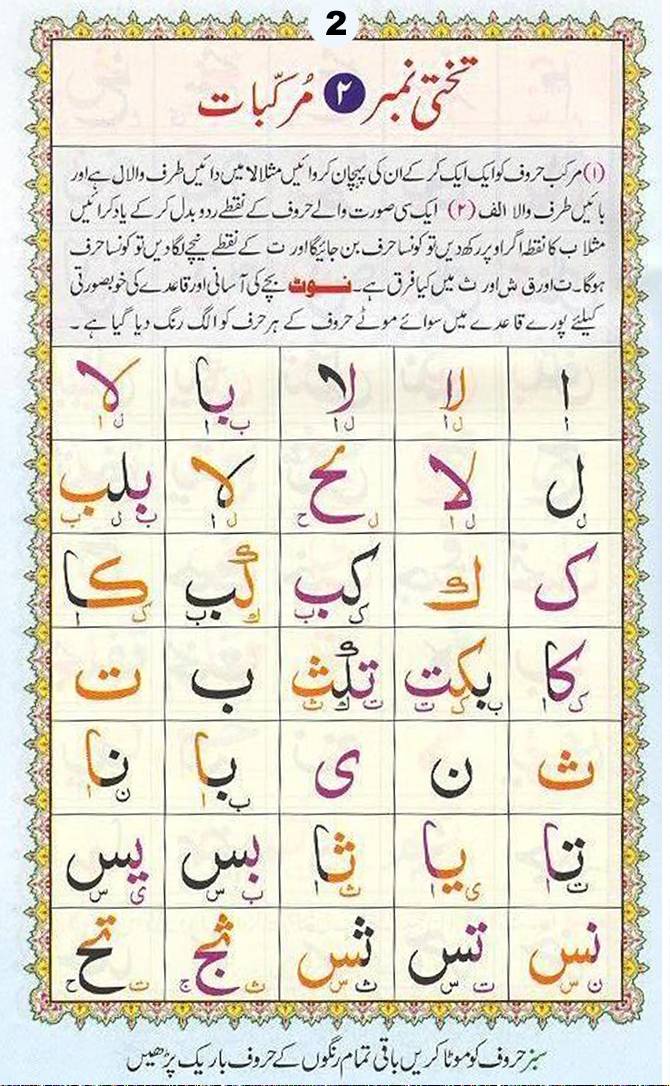 2
تختی نمبر ۲ مُرکّبات
(۱) مرکب حروف کو ایک ایک کر کے ان کی پہچان کروائیں مثلا لا میں دائیں طرف والا ل ہے اور
بائیں طرف والا الف (۲) ایک سی صورت والے حروف کے نقطے رد و بدل کر کے یاد کرائیں
مثلا ب کا نقطہ اگر اوپر رکھ دیں تو کونسا حرف بن جائیگا اور ت کے نقطے نیچے لگا دیں تو کونسا حرف
ہوگا۔ ت اور ق ش اور ث میں کیا فرق ہے۔ نـــوٹ بچے کی آسانی اور قاعدے کی خوبصورتی
کیلئے پورے قاعدے میں سوائے موٹے حروف کے ہر حرف کو الگ رنگ دیا گیا ہے۔
ا لا لا با لا
ا ل ا ل ا ب ا ل ا
ل لا لح لا بلب
ل ا ل ح ل ا ب ل ب
ک ك کب كب کا
ک ب ك ب ک ا
کا بکت تكث ب ت
ک ا ب ک ت ت ك ث
ث ن ی با نا
ب ا ن ا
تا یا ثا بس یس
ت ا ی ا ث ا ب س ی س
نس تس ثس ثج تح
ن س ت س ث س ث ج ت ح
سبز حروف کو موٹا کریں باقی تمام رنگوں کے حروف باریک پڑھیں